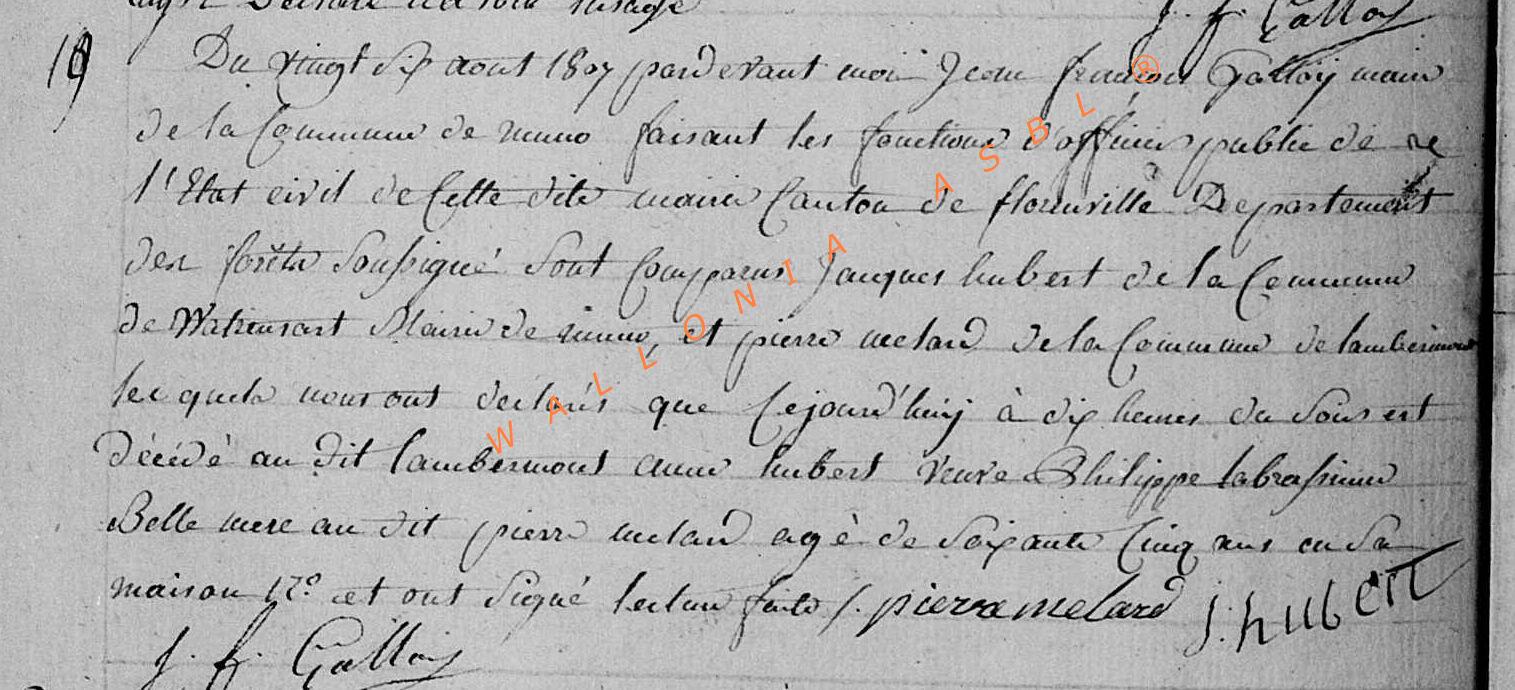 J. f. Galloÿ
19 Du vingt six aout 1807 pardevant moi Jean francois Galloÿ maire
de la Commune de muno faisant les fonctions d'officier public de
l'Etat civil de Cette dite mairie Canton de florenville Departement
des forêts soussigné sont Comparus Jacques hubert de la Commune
de Watrinsart Mairie de muno, et pierre melard de la Commune de lambermont
lesquels nous ont declarés que Cejourd'huij à dix heures du soir est
décédé au dit lambermont anne hubert veuve Philippe labrassinne
Belle mere au dit pierre melard agé de soixante Cinq ans en sa
maison et ont signé lecture faite /. pierre melard J. hubert
J. f. Galloÿ
WALLONIA ASBL ®